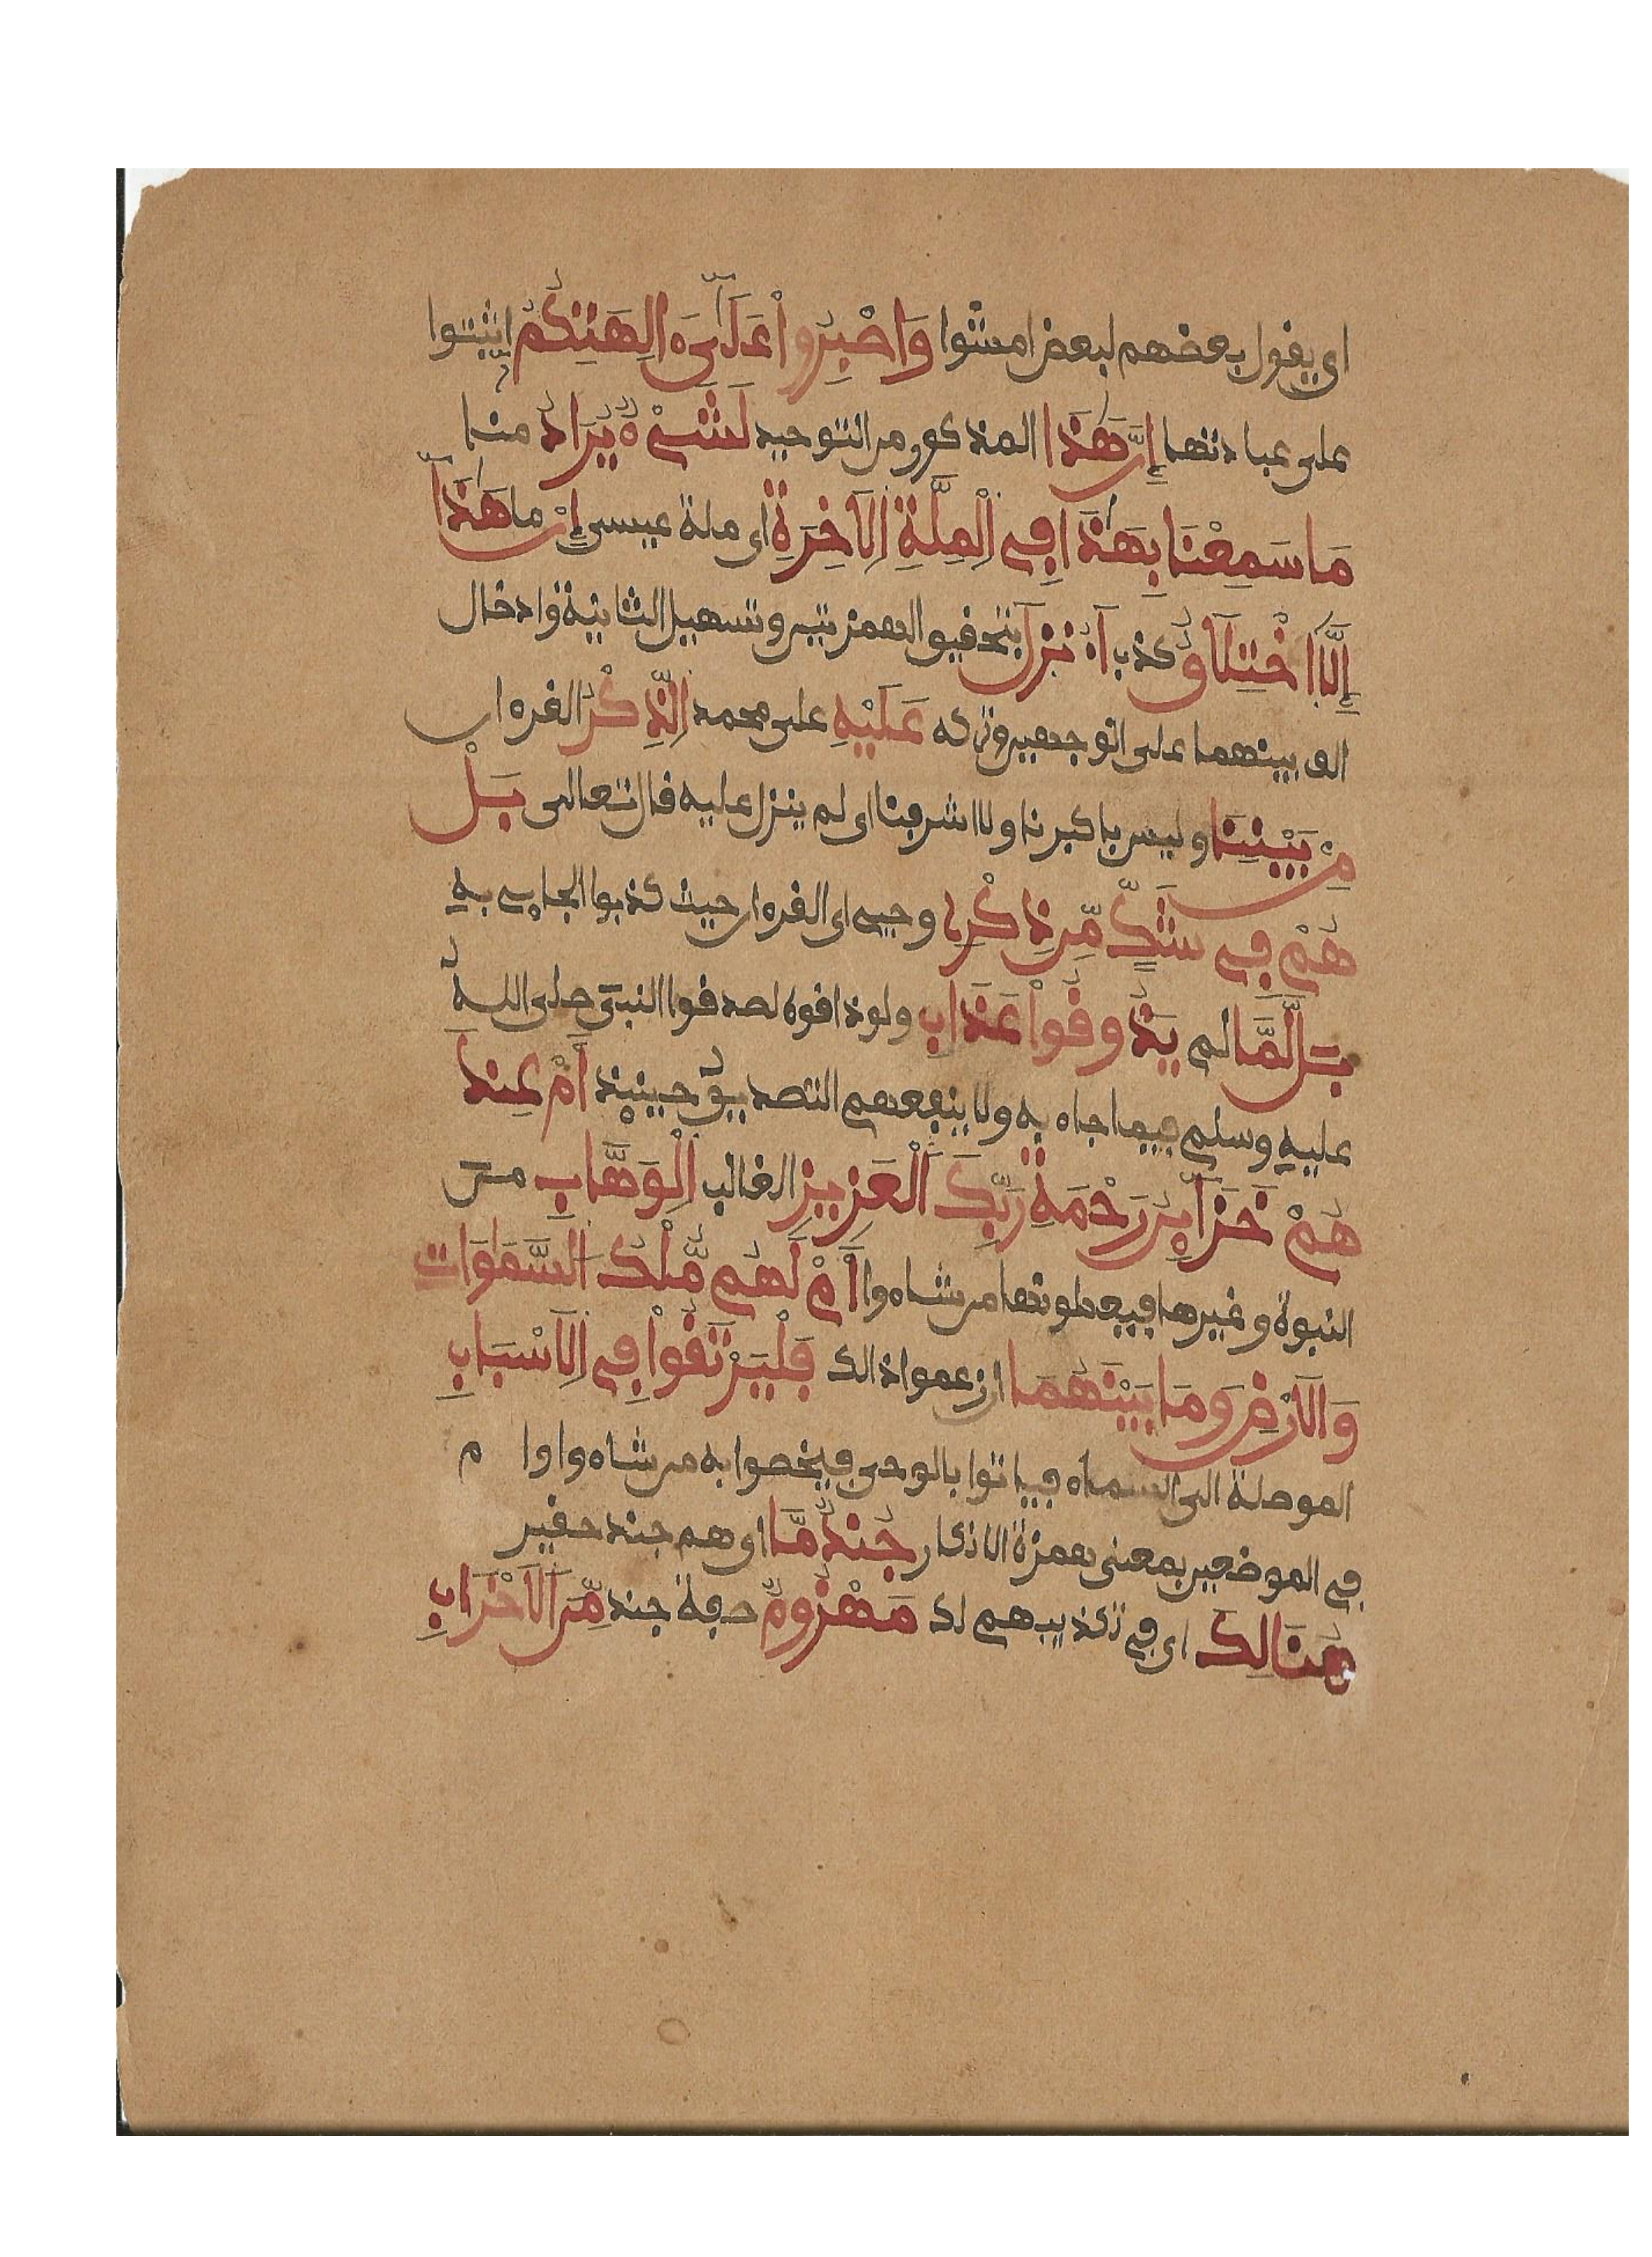 اي يقول بعضهم لبعض امشوا وَاصْبِرُواْ عَلَىٰٓ ءَالِهَتِكُمُۥٓ اثبتوا
على عبادتها إِنَّ هَٰذَا المذكور من التوحيد لَشَيْءٞ يُرَادُ منا
مَا سَمِعْنَا بِهَٰذَا فِے اِ۬لْمِلَّةِ اِ۬لَاخِرَةِ اي ملة عيسى إِنْ ما هَٰذَآ
إِلَّا اَ۪خْتِلَٰقٌ كذب أَ۟.نزِلَ بتحقيق الهمزتين وتسهيل الثانية وادخال
الف بينهما على الوجهين وتركه عَلَيْهِ على محمد اِ۬لذِّكْرُ القرءان
مِنۢ بَيْنِنَا وليس باكبرنا ولا اشرفنا اي لم ينزل عليه قال تعالى بَلْ
هُمْ فِے شَكّٖ مِّن ذِكْرِے وحيي اي القرءان حيث كذبوا الجاءي به
بَل لَّمَّا لم يَذُوقُواْ عَذَابِ ولو ذاقوه لصدقوا النبي صلى الله
عليه وسلم فيما جاء به ولا ينفعهم التصديق حينئذ أَمْ عِندَ
هُمْ خَزَآئِنُ رَحْمَةِ رَبِّكَ اَ۬لْعَزِيزِ الغالب اِ۬لْوَهَّابِ من
النبوة وغيرها فيعطونها من شاءوا أَمْ لَهُم مُّلْكُ اُ۬لسَّمَٰوَٰتِ
وَالَارْضِ وَمَا بَيْنَهُمَا ان زعموا ذالك فَلْيَرْتَقُواْ فِے اِ۬لَاسْبَٰبِ
الموصلة الى السماء فياتوا بالوحي فيخصوا به من شاءوا وام
في الموضعين بمعنى همزة الانكار جُندٞ مَّا اي هم جند حقير
هُنَالِكَ اي في تكذيبهم لك مَهْزُومٞ صفة جند مِّنَ اَ۬لَاحْزَابِ